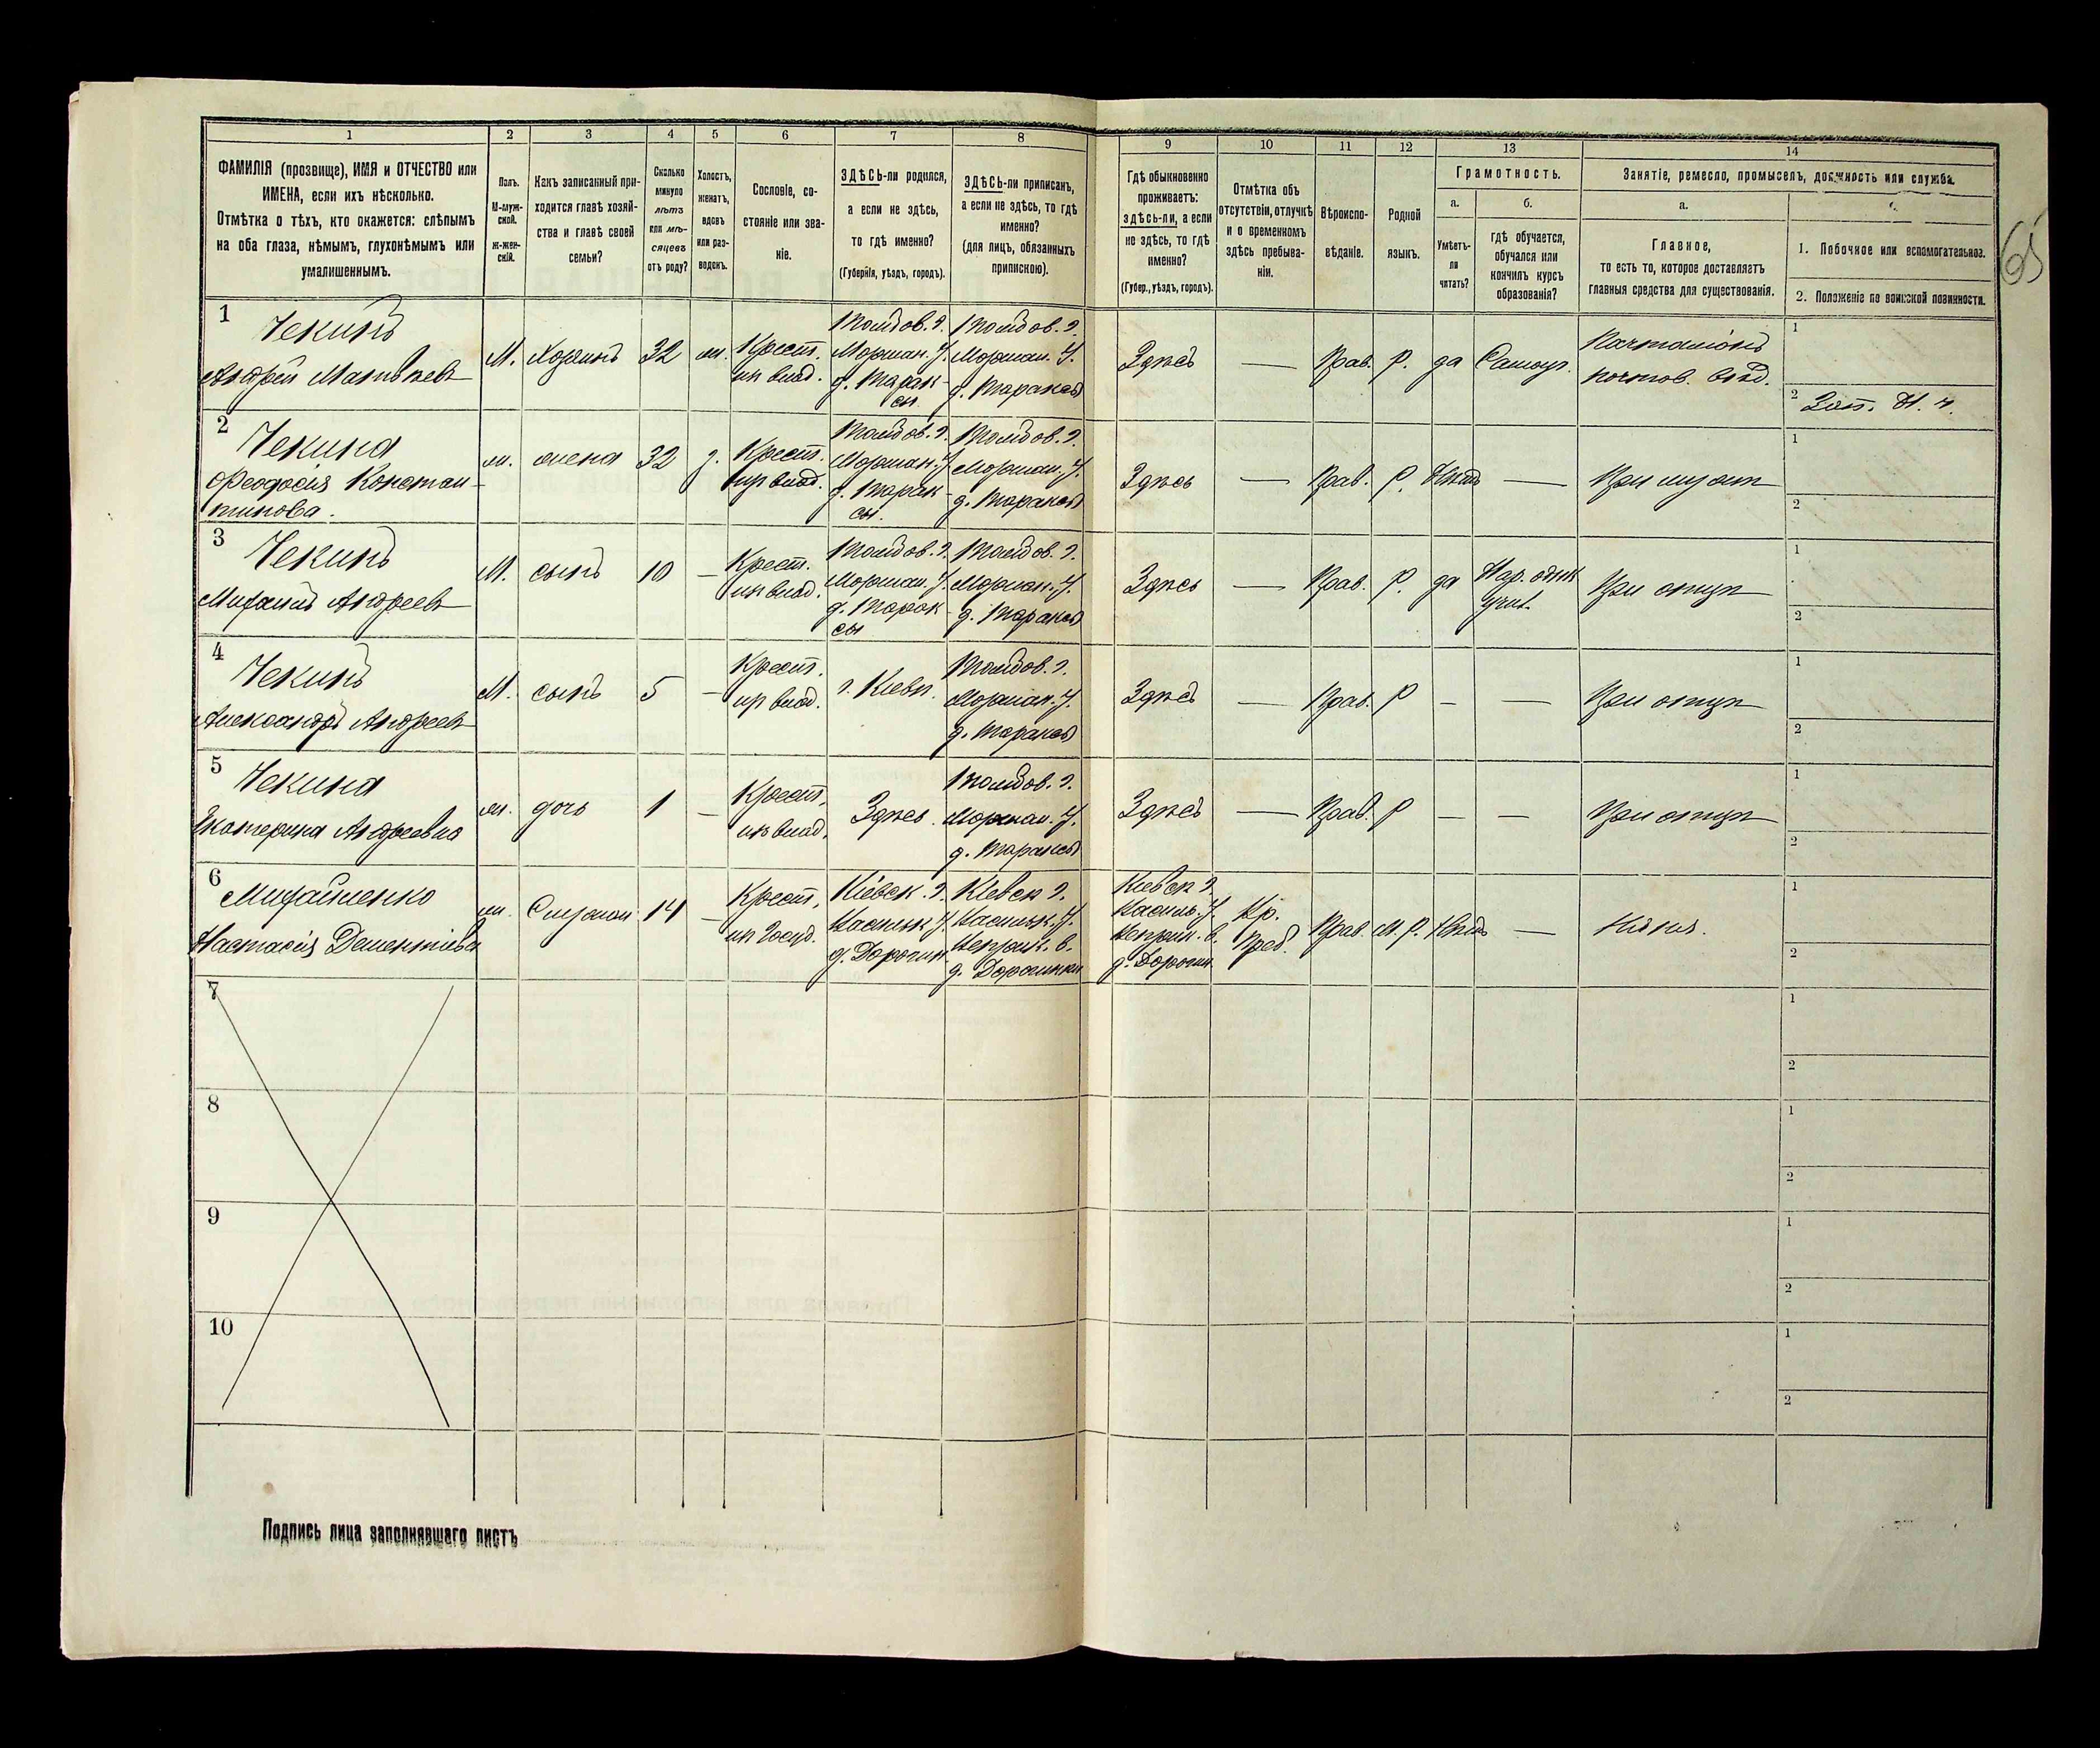 1 2 3 4 5 6 7 8 9 10 11 12 13 14
ФАМИЛІЯ (прозвище), ИМЯ и ОТЧЕСТВО или
ИМЕНА, если ихъ нѣсколько.
Отмѣтка о тѣхъ, кто окажется: слѣпымъ
на оба глаза, нѣмымъ, глухонѣмымъ или
умалишеннымъ.
Полъ.
М-муж-
ской.
Ж-жен-
скій.
Какъ записанный при-
ходится главѣ хозяй-
ства и главѣ своей
семьи?
Сколько
минуло
лѣтъ
или мѣ-
сяцевъ
отъ роду?
Холостъ,
женатъ,
вдовъ
или раз-
веденъ.
Сословіе, со-
стояніе или зва-
ніе.
ЗДѢСЬ-ли родился,
а если не здѣсь,
то гдѣ именно?
(Губернія, уѣздъ, городъ).
ЗДѢСЬ-ли приписанъ,
а если не здѣсь, то гдѣ
именно?
(для лицъ, обязанныхъ
припискою).
Гдѣ обыкновенно
проживаетъ:
здѣсь-ли, а если
не здѣсь, то гдѣ
именно?
(Губер., уѣздъ, городъ).
Отмѣтка объ
отсутствіи, отлучкѣ
и о временномъ
здѣсь пребыва-
ніи.
Вѣроиспо-
вѣданіе.
Родной
языкъ.
Грамотность.
а.
Умѣетъ-
ли
читать?
б.
гдѣ обучается,
обучался или
кончилъ курсъ
образованія?
Занятіе, ремесло, промыселъ, должность или служба.
а.
Главное,
то есть то, которое доставляетъ
главныя средства для существованія.
1. Побочное или вспомогательное.
2. Положеніе по воинской повинности.
65
1
Чекинъ
Андрей Матвѣевъ
М. Хозяинъ 32 ж.
Крест.
из влад.
Тамбов. г.
Моршан. У.
д. Таракс-
сы
Тамбов. г.
Моршан. У.
д. Тараксы
Здѣсь — Прав. Р. да Самоуч.
Почталіонъ
почтов. вѣд.
1
2 Зап. Н. ч.
2
Чекина
Феодосія Констан-
тинова.
ж. жена 32 з.
Крест.
из влад.
Тамбов. г.
Моршан. У.
д. Тарак-
сы.
Тамбов. г.
Моршан. У.
д. Тараксы
Здѣсь — Прав. Р. Нѣтъ — При мужѣ
1
2
3
Чекинъ
Михаилъ Андреевъ
М. сынъ 10 —
Крест.
из влад.
Тамбов. г.
Моршан. У.
д. Тарак-
сы
Тамбов. г.
Моршан. У.
д. Тараксы
Здѣсь — Прав. Р. да
учил.
При отцѣ
1
2
4
Чекинъ
Александръ Андреевъ
М. сынъ 5 —
Крест.
из влад.
г. Кіевъ.
Тамбов. г.
Моршан. У.
д. Тараксы
Здѣсь — Прав. Р — — При отцѣ
1
2
5
Чекина
Екатерина Андреевна
ж. дочь 1 —
Крест.
из влад.
Здѣсь.
Тамбов. г.
Моршан. У.
д. Тараксы
Здѣсь — Прав. Р — — При отцѣ
1
2
6
Михайленко
Настасія Дементіева
ж. Служан. 14 —
Крест.
из Госуд.
Кіевск. г.
Васильк. У.
д. Дорогин.
Кіевск г.
Васильк. У.
д. Дорогинки
Кіевск г.
Василь. У.
д. Дорогин.
Вр.
Преб.
Прав. М. Р. Нѣтъ — Няня.
1
2
7
1
2
8
1
2
9
1
2
10
1
2
Подпись лица заполнявшаго листъ